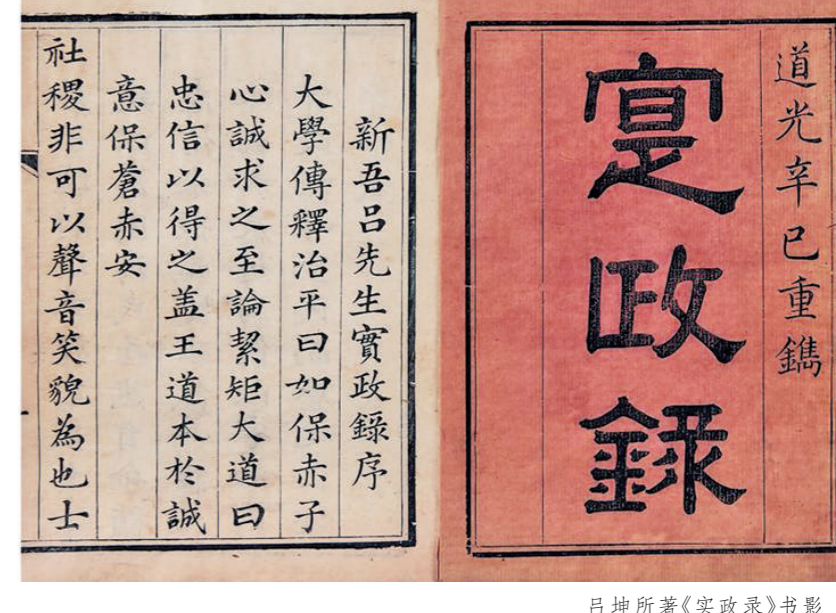 道光辛巳重鐫
寔政錄
新吾呂先生實政錄序
大學傳釋治平曰如保赤子
心誠求之至論絜矩大道曰
忠信以得之盖王道本於誠
意保蒼赤安
社稷非可以聲音笑貌為也士
吕坤所著《实政录》书影